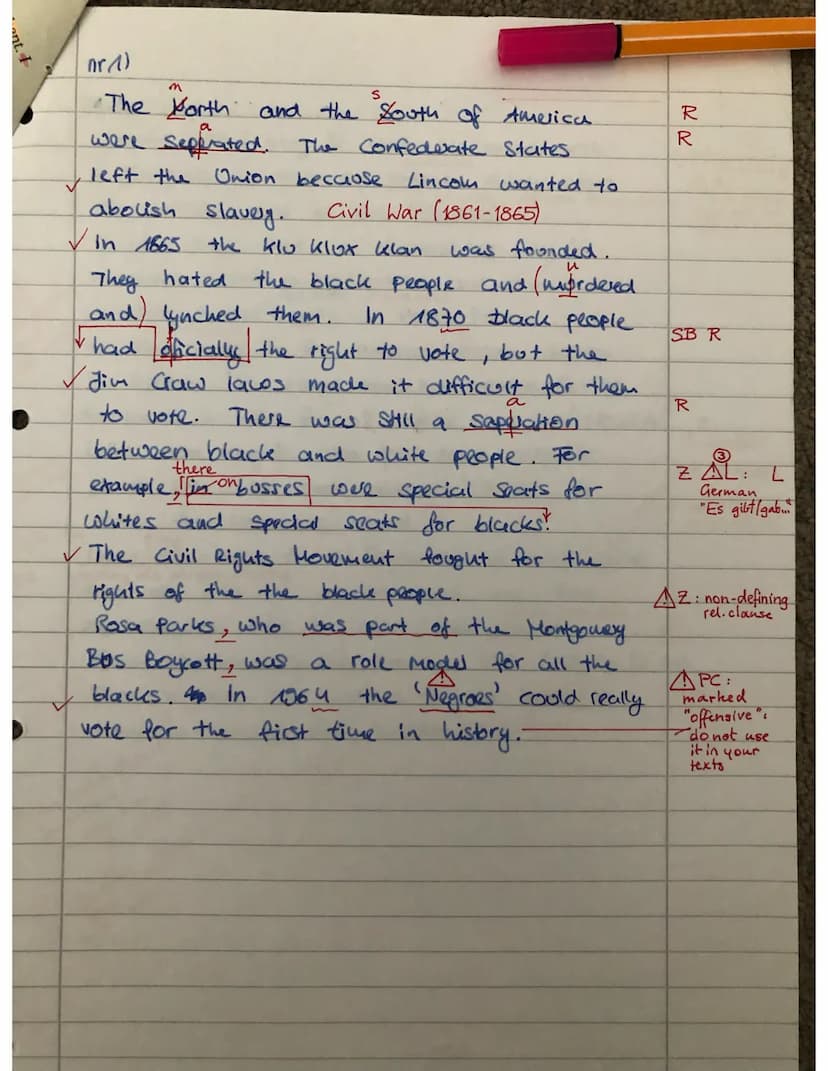 ent. +
nr 1)
n s
The North and the South of America R
a R
were seperated. The Confederate States
left the Union because Lincoln wanted to
abolish slavery. Civil War (1861-1865)
In 1865 the klu klux klan was founded.
u
They hated the black people and (mordered
and) lynched them. In 1870 black people
SB R
had oficially the right to vote, but the
Jim Craw laws made it difficult for them
a R
to vote. There was still a sapration
between black and white people. For
there ③
example, in on busses were special seats for Z AL: L
German
"Es gibt/gab..."
whites and special seats for blacks!
The Civil Rights Movement fought for the
rights of the the black people. Z: non-defining
rel. clause
Rosa Parks, who was part of the Montgomery
Bus Boycott, was a role model for all the
PC:
blacks. In 1964 the 'Negroes' could really marked
"offensive":
vote for the first time in history. do not use
it in your
texts